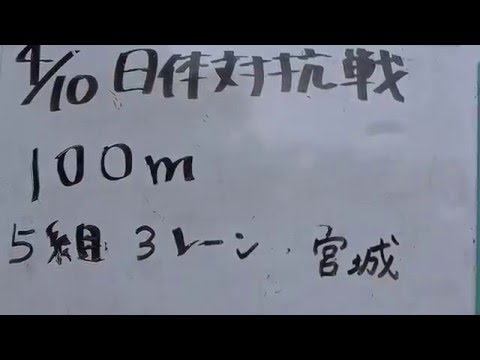 4/10 日体対抗戦
100m
5組 3レーン. 宮城